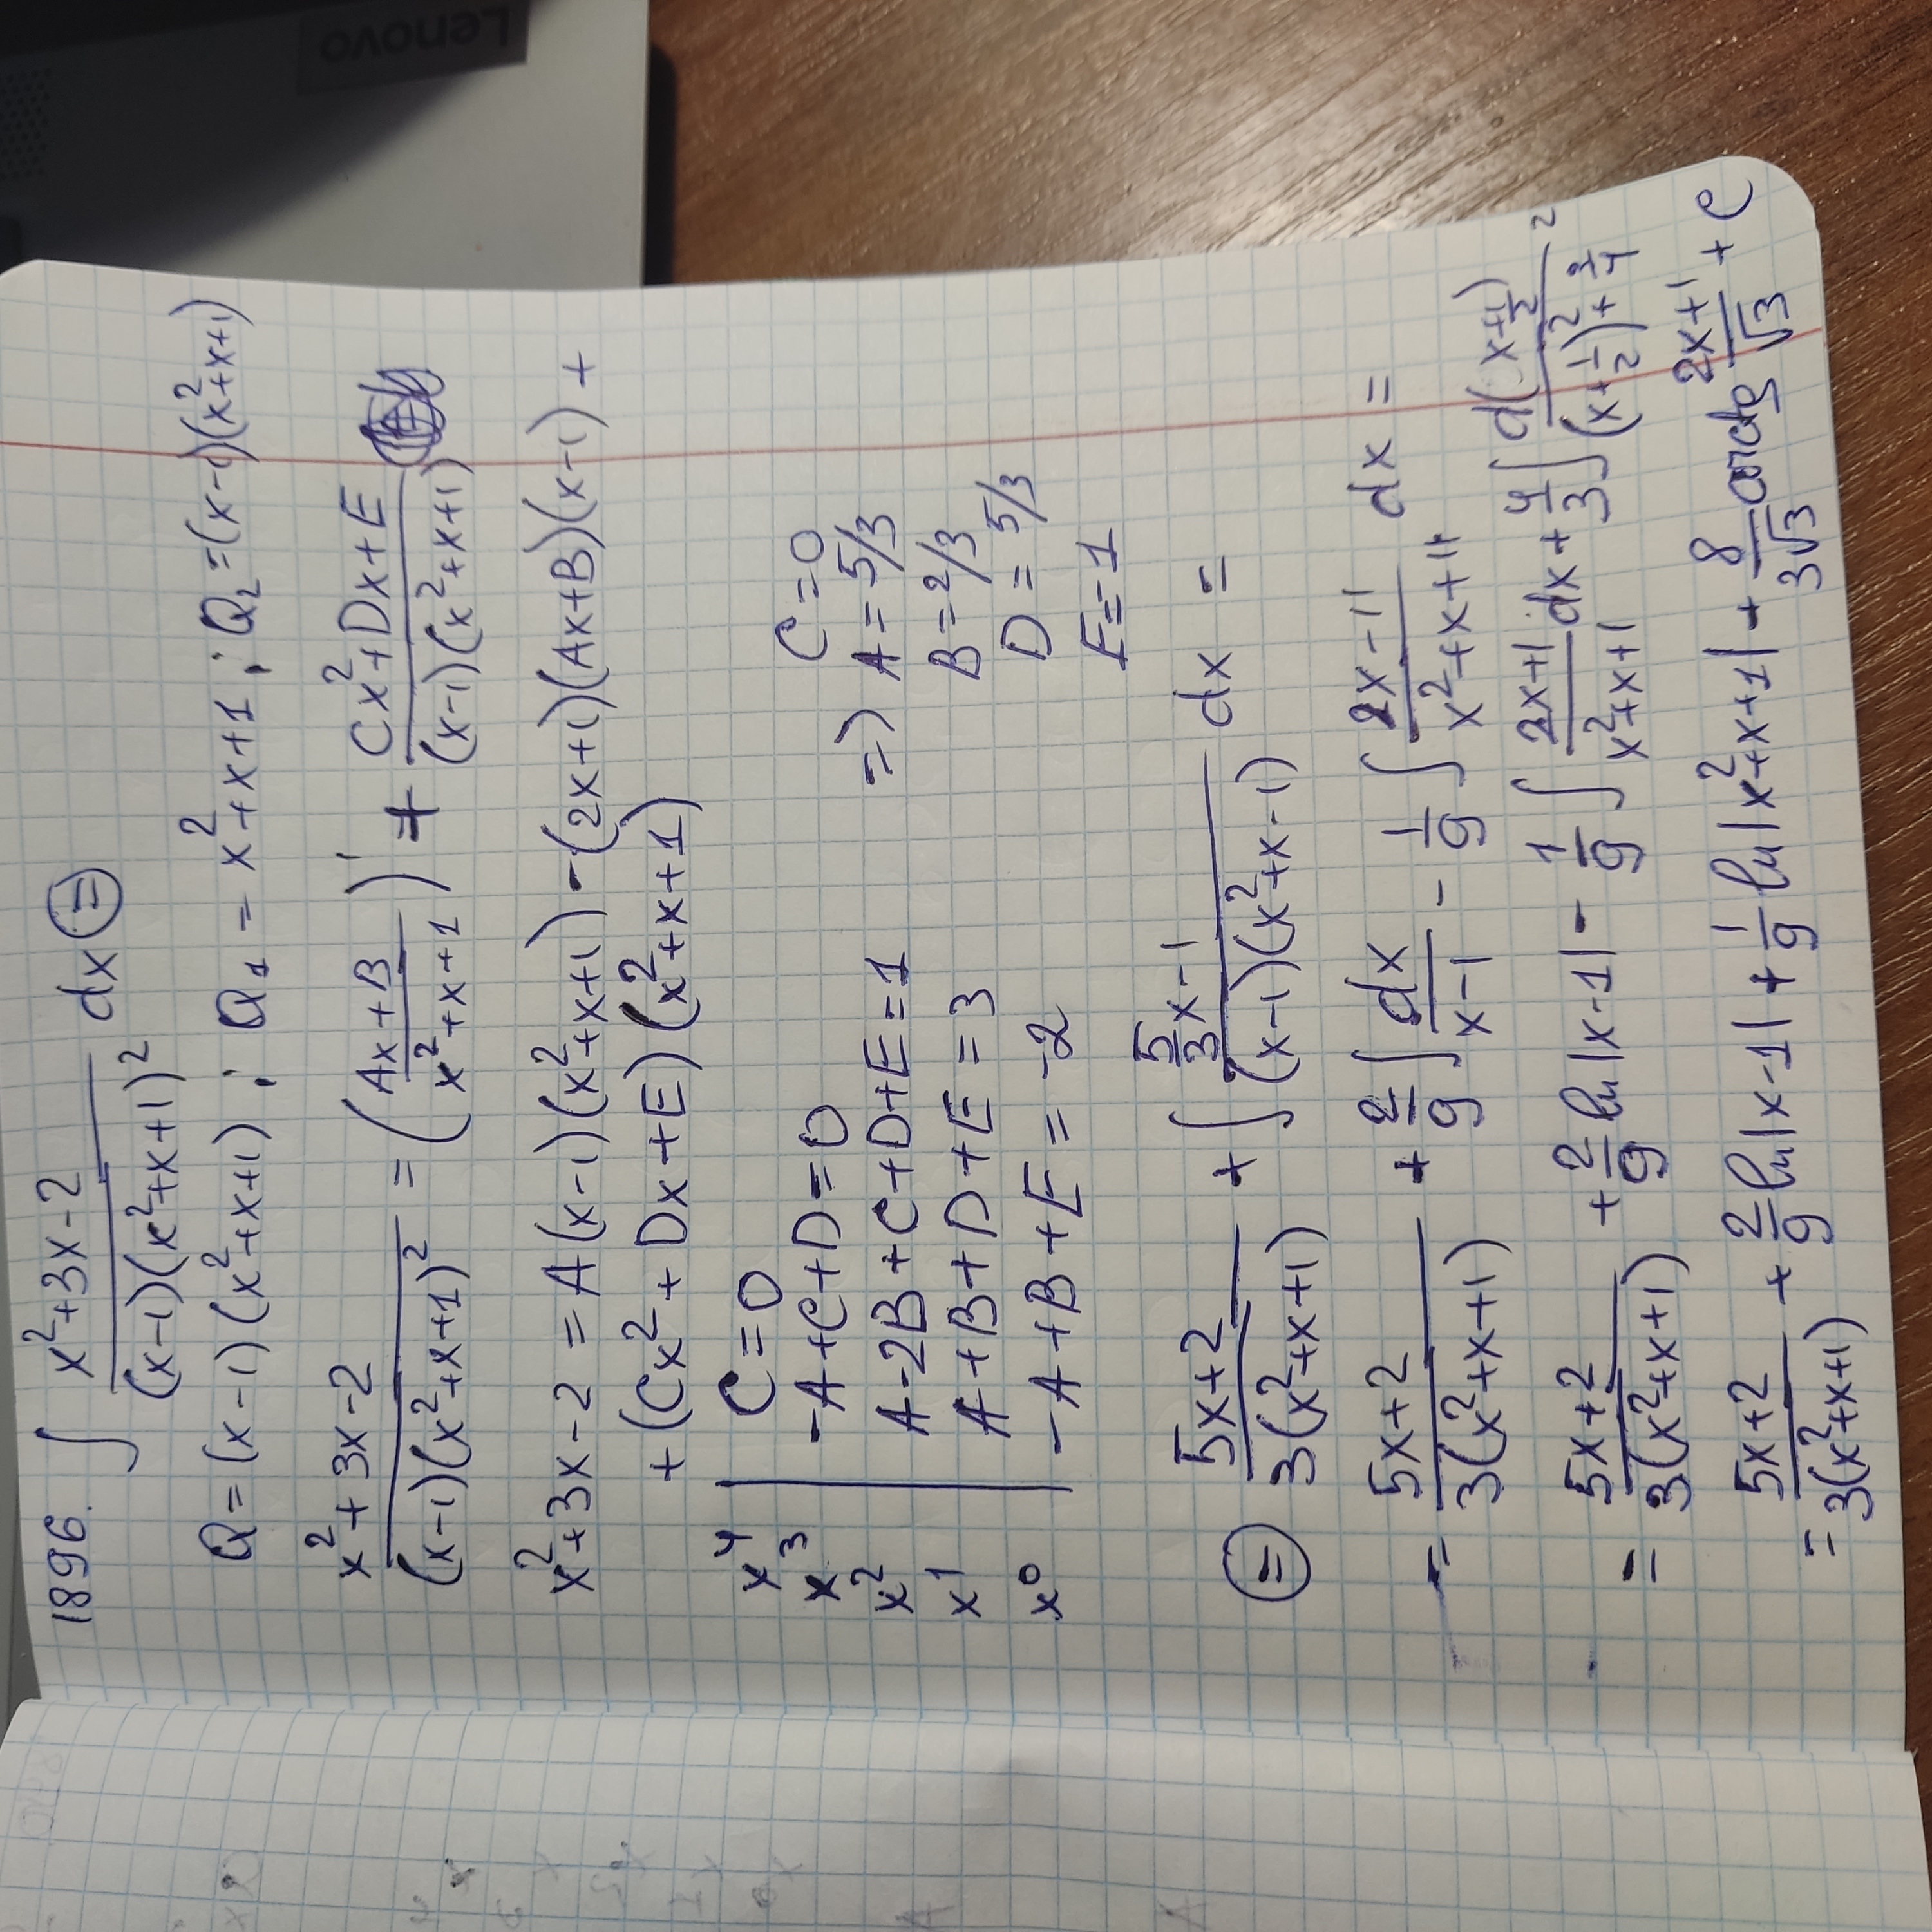 1896. ∫ (x²+3x-2)/((x-1)(x²+x+1)²) dx ⊜
Q = (x-1)(x²+x+1) ; Q₁ = x²+x+1 ; Q₂ = (x-1)(x²+x+1)
(x²+3x-2)/((x-1)(x²+x+1)²) = ((Ax+B)/(x²+x+1))' + (Cx²+Dx+E)/((x-1)(x²+x+1))
x²+3x-2 = A(x-1)(x²+x+1) - (2x+1)(Ax+B)(x-1) +
+ (Cx²+Dx+E)(x²+x+1)
x⁴ | C=0
x³ | -A+C+D=0
x² | A-2B+C+D+E=1
x¹ | A+B+D+E=3
x⁰ | -A+B+E=-2
=> C=0
A=5/3
B=2/3
D=5/3
E=-1
⊜ (5x+2)/(3(x²+x+1)) + ∫ (5/3 x-1)/((x-1)(x²+x-1)) dx =
= (5x+2)/(3(x²+x+1)) + 2/9 ∫ dx/(x-1) - 1/9 ∫ (2x-11)/(x²+x+1) dx =
= (5x+2)/(3(x²+x+1)) + 2/9 ln|x-1| - 1/9 ∫ (2x+1)/(x²+x+1) dx + 4/3 ∫ d(x+1/2)/((x+1/2)²+3/4) =
= (5x+2)/(3(x²+x+1)) + 2/9 ln|x-1| + 1/9 ln|x²+x+1| + 8/(3√3) arctg (2x+1)/√3 + C
Lenovo